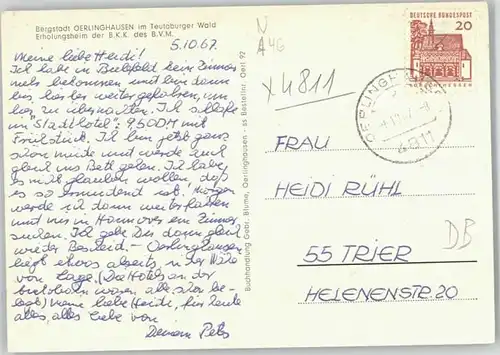 Bergstadt OERLINGHAUSEN im Teutoburger Wald
Erholungsheim der B.K.K. des B.V.M.
5.10.67
Meine liebe Heidi!
Ich habe in Bielefeld kein Zimmer
mehr bekommen und bin dann
bis hierher weitergefahren, um
hier zu übernachten. Ich schlafe
im "Stadthotel": 9,50 DM mit
Frühstück. Ich bin jetzt ganz
schön müde und werde auch
gleich ins Bett gehen. Ich habe
es nicht glauben wollen, daß
es so ermüdend ist! Morgen
werde ich dann weiterfahren
und mir in Hannover ein Zimmer
suchen. Ich gebe Dir dann gleich
wieder Bescheid. - Oerlinghausen
liegt etwas abseits, in der Nähe
von Lage. (Die Hotels an der
Autobahn waren alle schon be-
legt) Meine liebe Heidi, für heute
alles, alles Liebe von
Deinem Peter
Buchhandlung Gebr. Blume, Oerlinghausen - ss Bestellnr. Oerl 92
N
A46
x 4811
DEUTSCHE BUNDESPOST
20
LORSCH/HESSEN
OERLINGHAUSEN
4811
FRAU
HEIDI RÜHL
55 TRIER
HELENENSTR. 20
DB